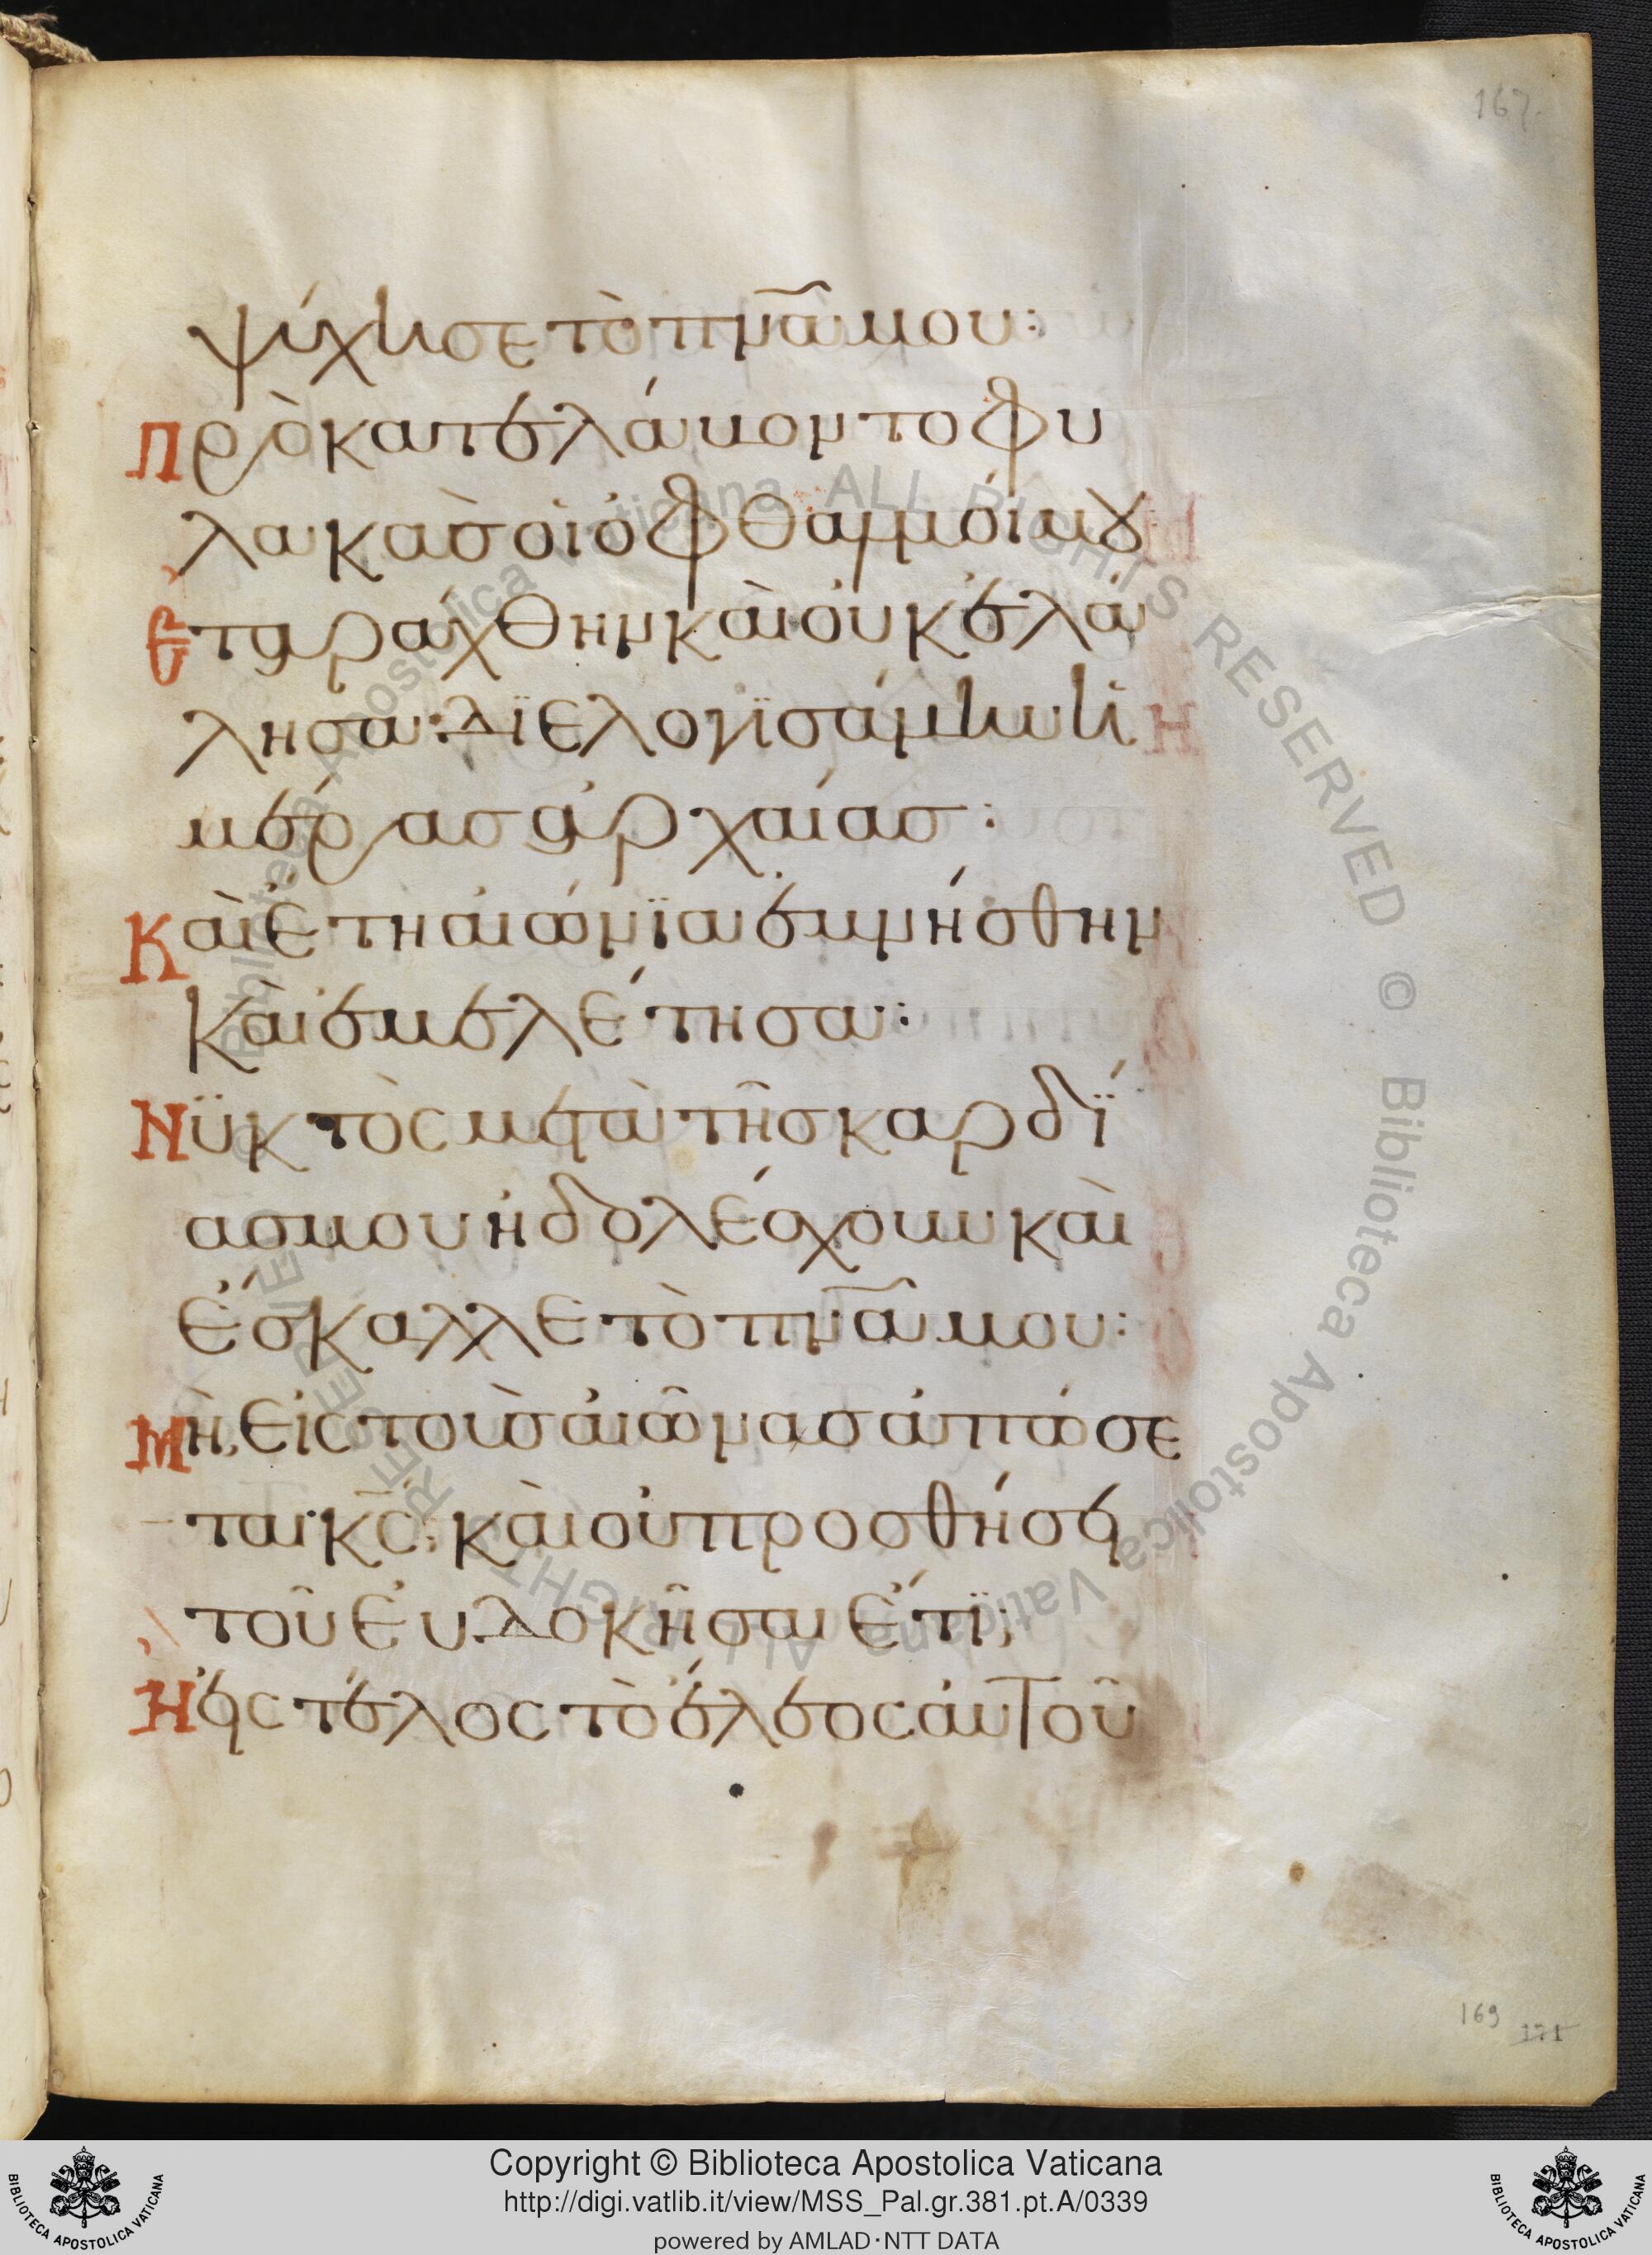 167
ψύχησε τὸ πνᾶ μου:
Προκατελάβοντο φυ
λακὰσ οἱ ὀφθαλμοί μου
Ἐταράχθην καὶ οὐκ ἐλά
λησα· Διελογϊσάμην ἡ
μέρασ ἀρχαίασ:
Καὶ ἔτη αἰώνϊα ἐμνήσθην
καὶ ἐμελέτησα:
Νϋκτὸς μετὰ τῆσ καρδί
ασ μου ἠδολέσχουν καὶ
ἔσκαλλε τὸ πνᾶ μου:
Μὴ εἰς τοὺσ αἰῶνασ ἀπώσε
ται κς̄; καὶ οὐ προσθήσει
τοῦ εὐδοκῆσαι ἔτϊ;
Ἢ εἰς τέλος τὸ ἔλεος αὐτοῦ
169 171
Biblioteca Apostolica Vaticana ALL RIGHTS RESERVED © Biblioteca Apostolica Vaticana ALL RIGHTS RESERVED
Copyright © Biblioteca Apostolica Vaticana
http://digi.vatlib.it/view/MSS_Pal.gr.381.pt.A/0339
powered by AMLAD·NTT DATA
BIBLIOTECA APOSTOLICA VATICANA
BIBLIOTECA APOSTOLICA VATICANA